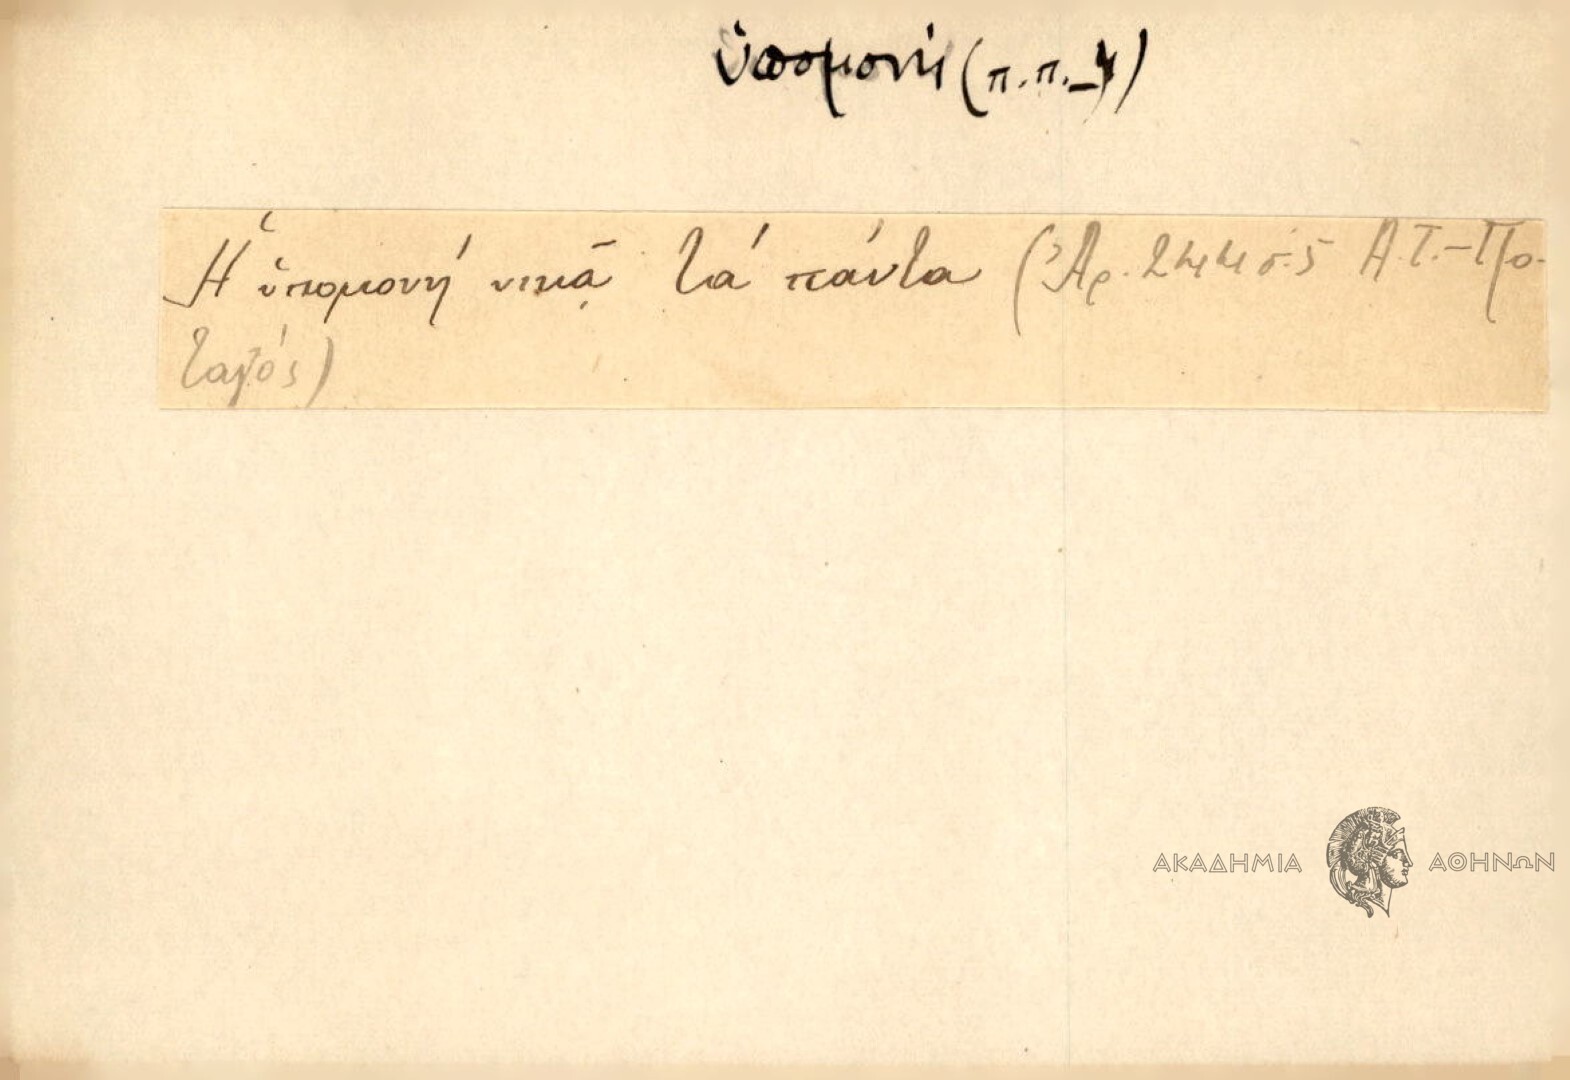 ὑπομονή (π.π.-4)
Ἡ ὑπομονή νικᾷ τά πάντα (Ἀρ. 244 σ.5 Α.Τ.-
ΑΚΑΔΗΜΙΑ ΑΘΗΝΩΝ